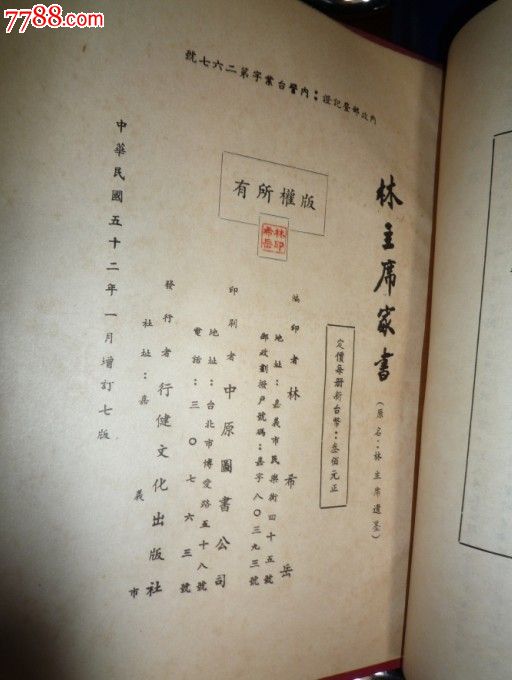 7788.com
內政部登記證：內警台業字第二六七號
林主席家書
（原名：林主席遺墨）
版權所有
林印
希岳
定價每册新台幣：叁佰元正
編印者 林希岳
地址：嘉義市民樂街四十五號
郵政劃撥戶號碼：嘉字八〇三九三號
印刷者 中原圖書公司
地址：台北市博愛路五十八號
電話：三〇七六三號
發行者 行健文化出版社
社址：嘉義市
中華民國五十二年一月增訂七版